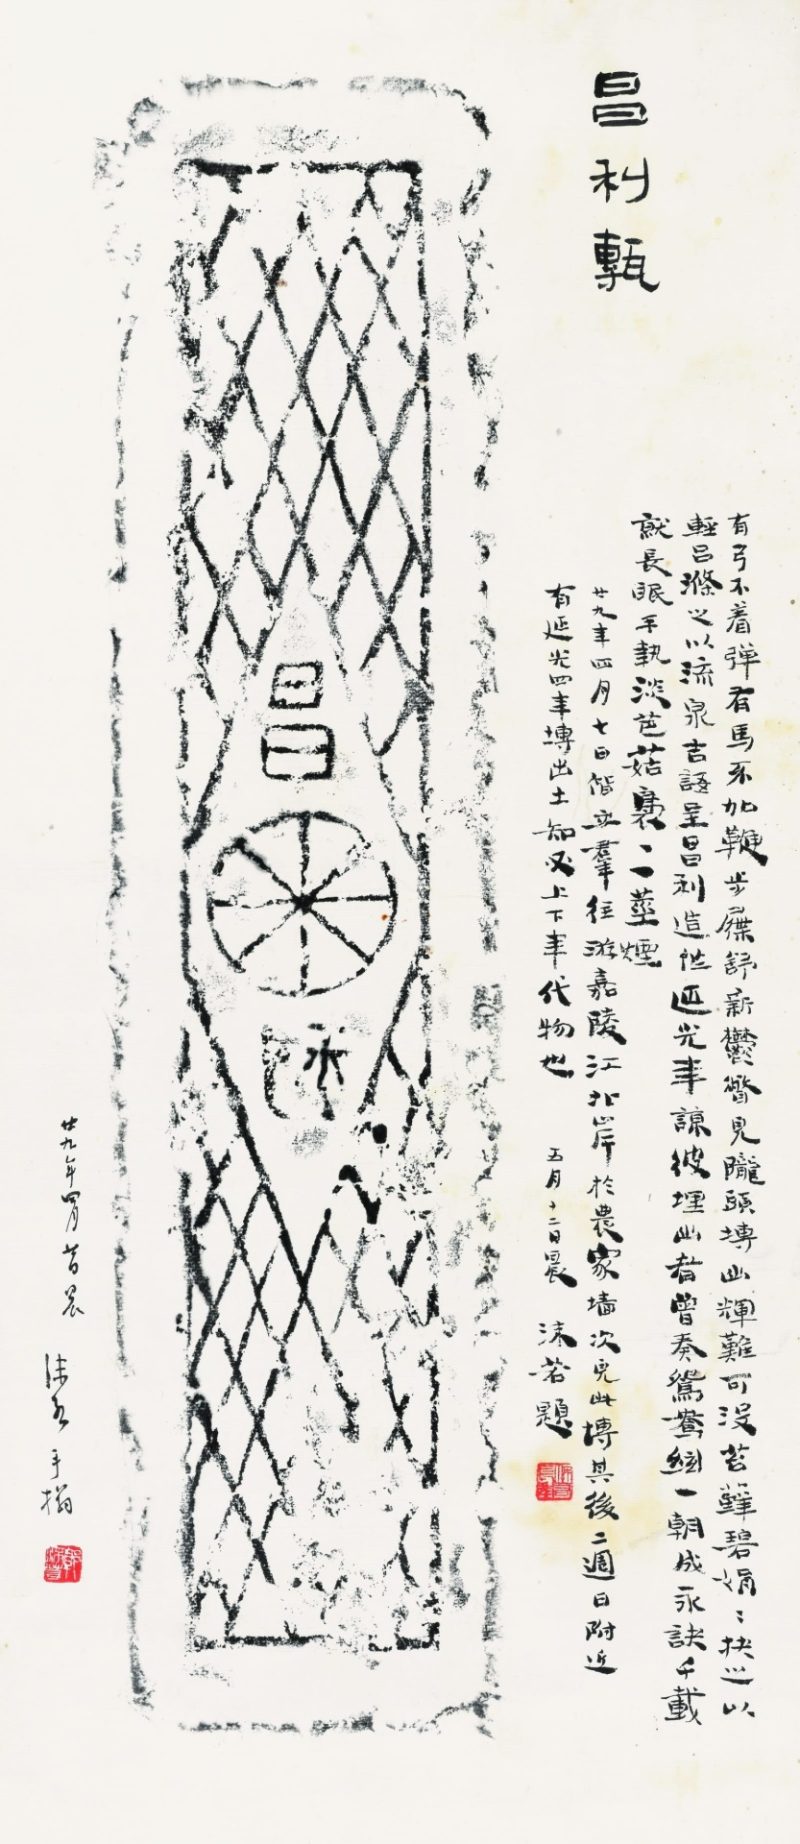 昌利甎
有弓不着弹有馬不加鞭步屧舒新鬱瞥見隴頭塼幽輝難可没苔蘚碧娟〻抉之以
輕吕滌之以流泉吉語呈昌利造涖延光年諒彼埋幽者曾奏鴛鴦絃一朝成永訣千載
就長眠手執淡芭菇裊〻一莖煙
廿九年四月七日偕立羣往游嘉陵江北岸於農家墻次見此塼其後二週日附近
有延光四年塼出土知必上下年代物也 五月十二日晨 沫若題
昌
利
廿九年四月廿晨
沫若手搨